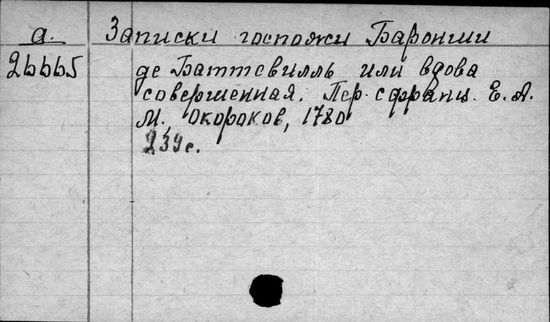 а. Записки госпожи Баронши
26665 де Баттевилль или вдова
совершенная. Пер. с франц. Е. А.
М. Окороков, 1780
239 с.